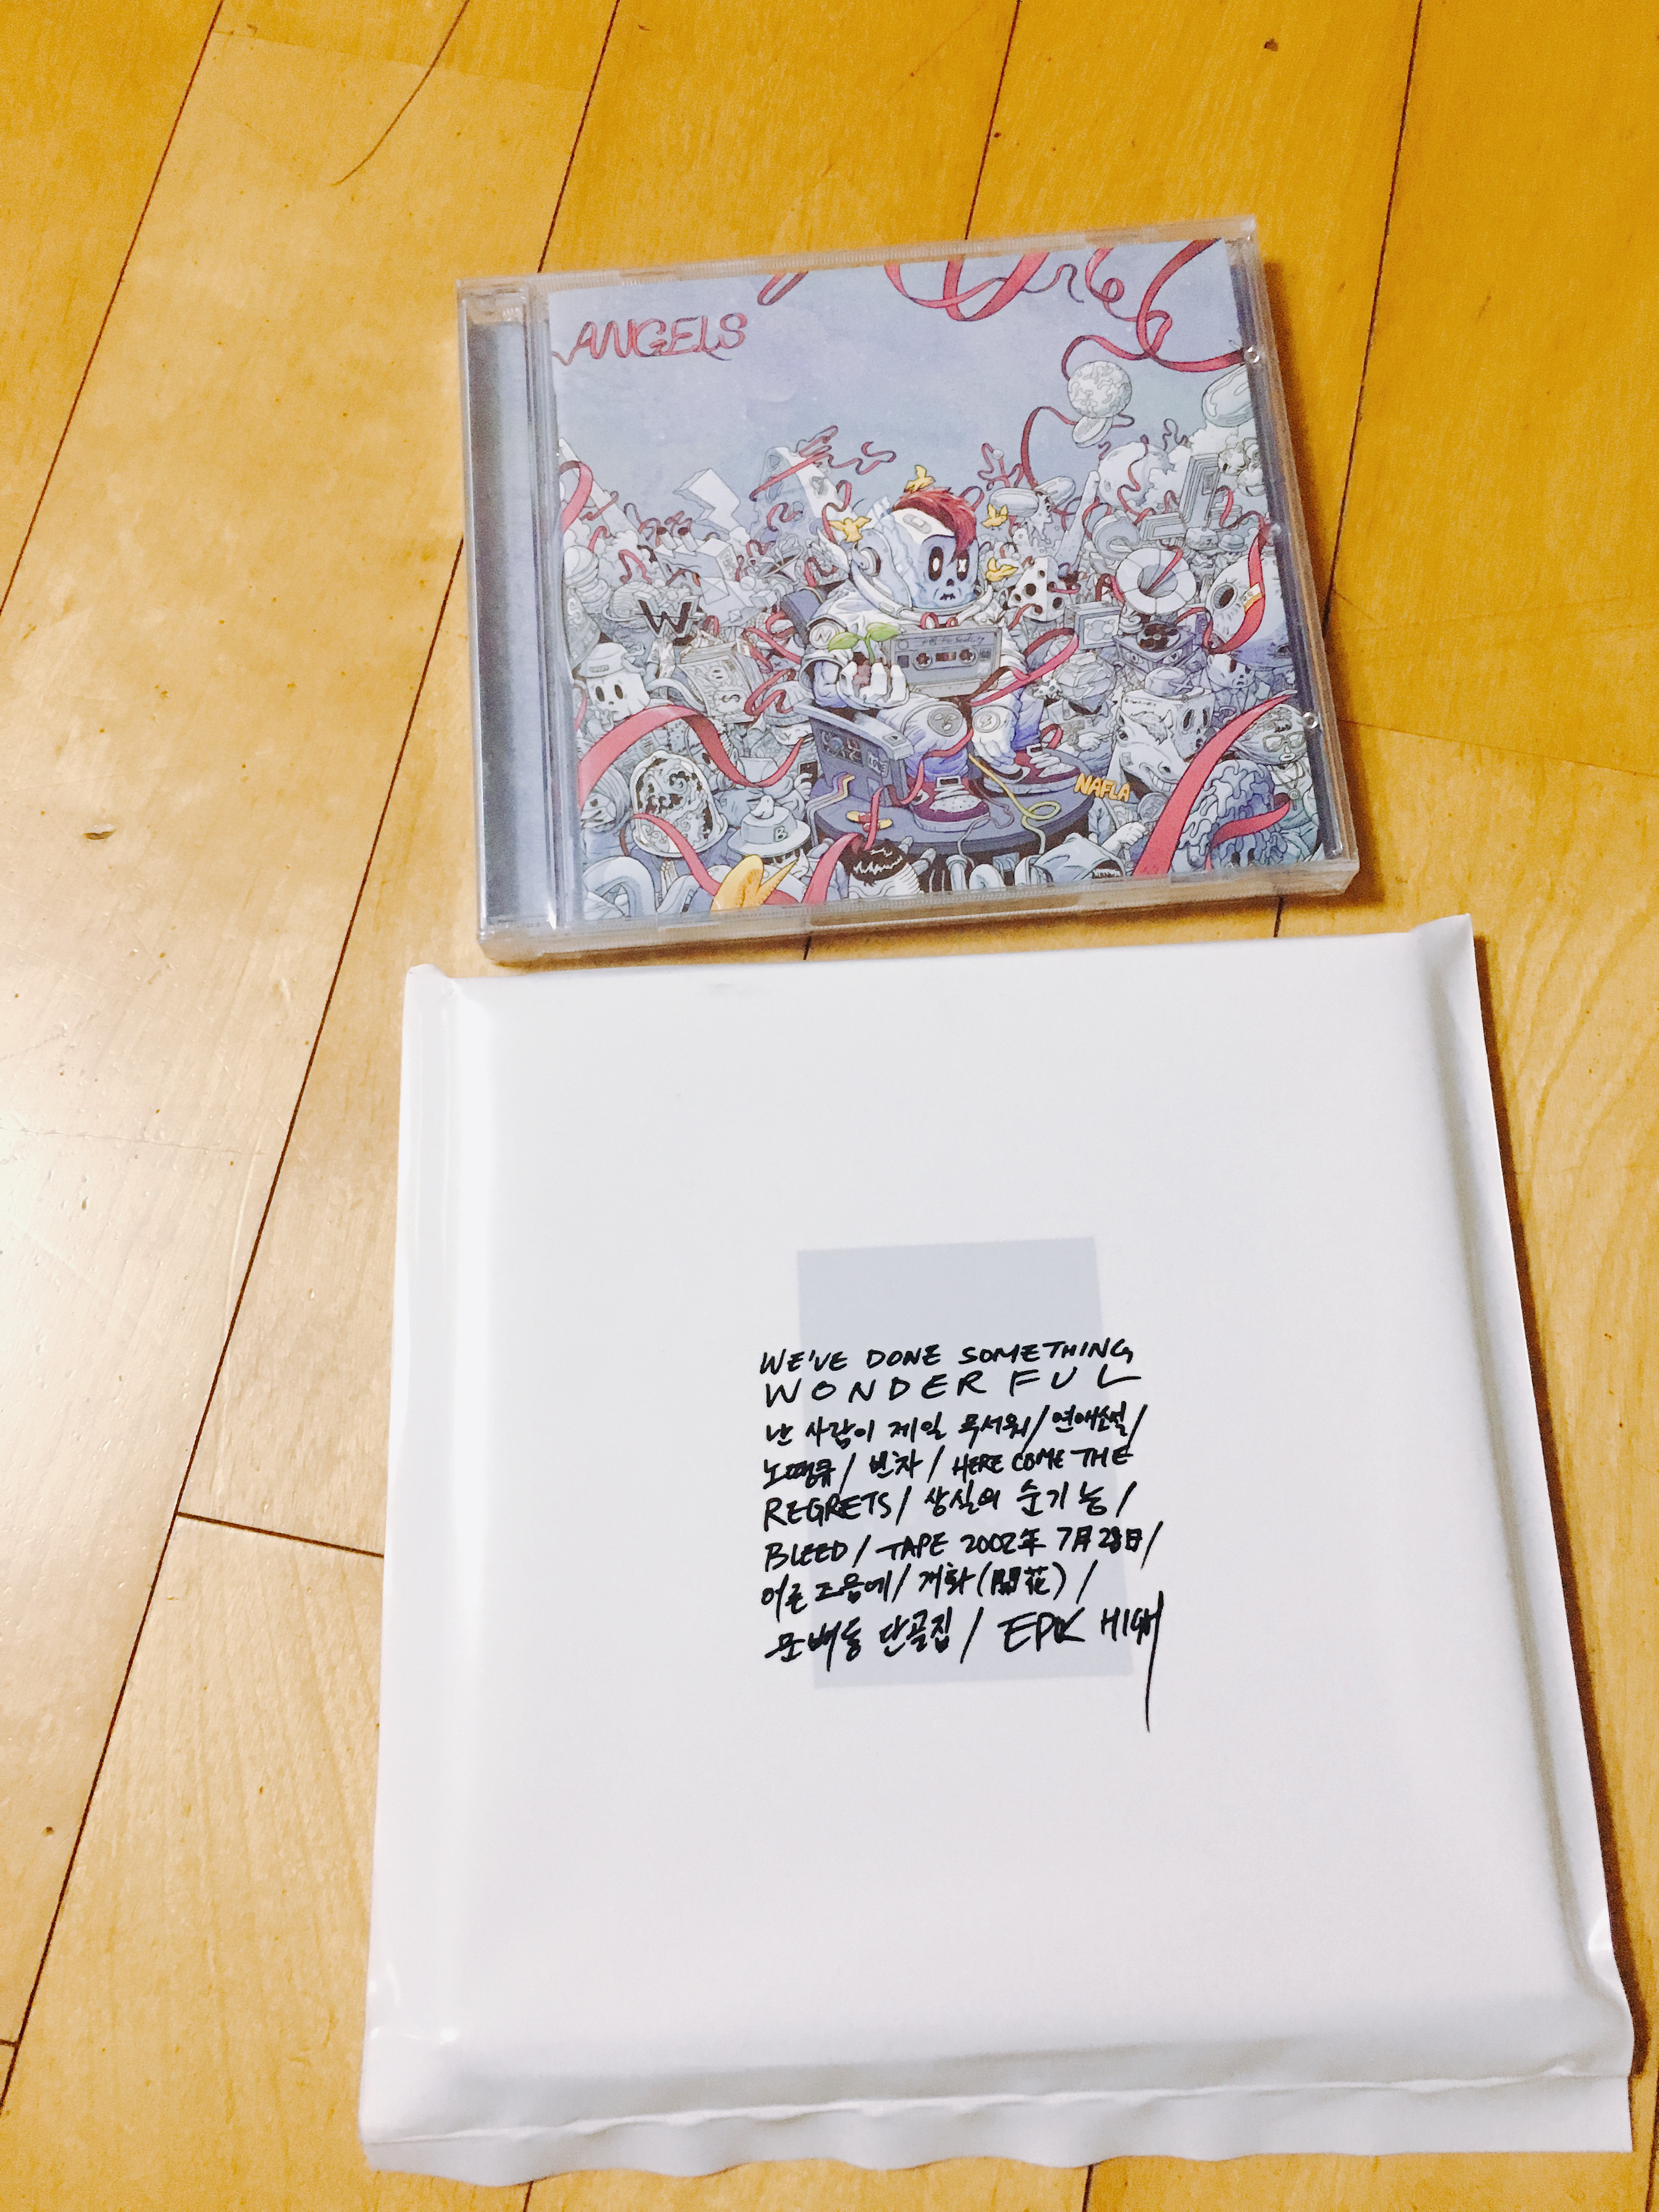 ANGELS
W
NAFLA
WE'VE DONE SOMETHING
WONDERFUL
난 사람이 제일 무서워/연애소설/
노땡큐/빈차/HERE COME THE
REGRETS/상실의 순기능/
BLEED/TAPE 2002年 7月28日/
어른 즈음에/개화(開花)/
문배동 단골집/EPIK HIGH